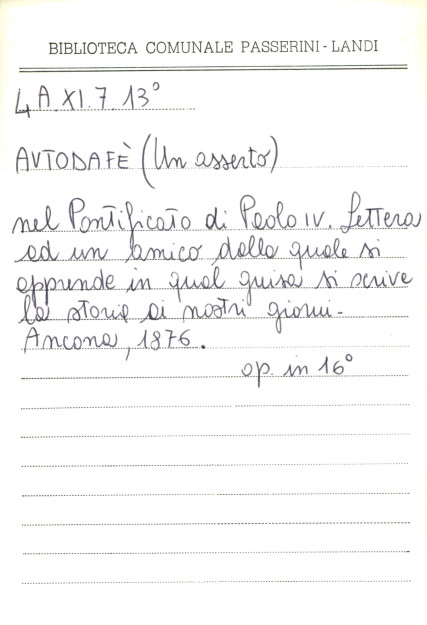 BIBLIOTECA COMUNALE PASSERINI - LANDI
4A.XI.7.13°
AUTODAFÈ (Un asserto)
nel Pontificato di Paolo IV. Lettera
ad un amico dalla quale si
apprende in qual guisa si scrive
la storia ai nostri giorni -
Ancona, 1876.
op. in 16°